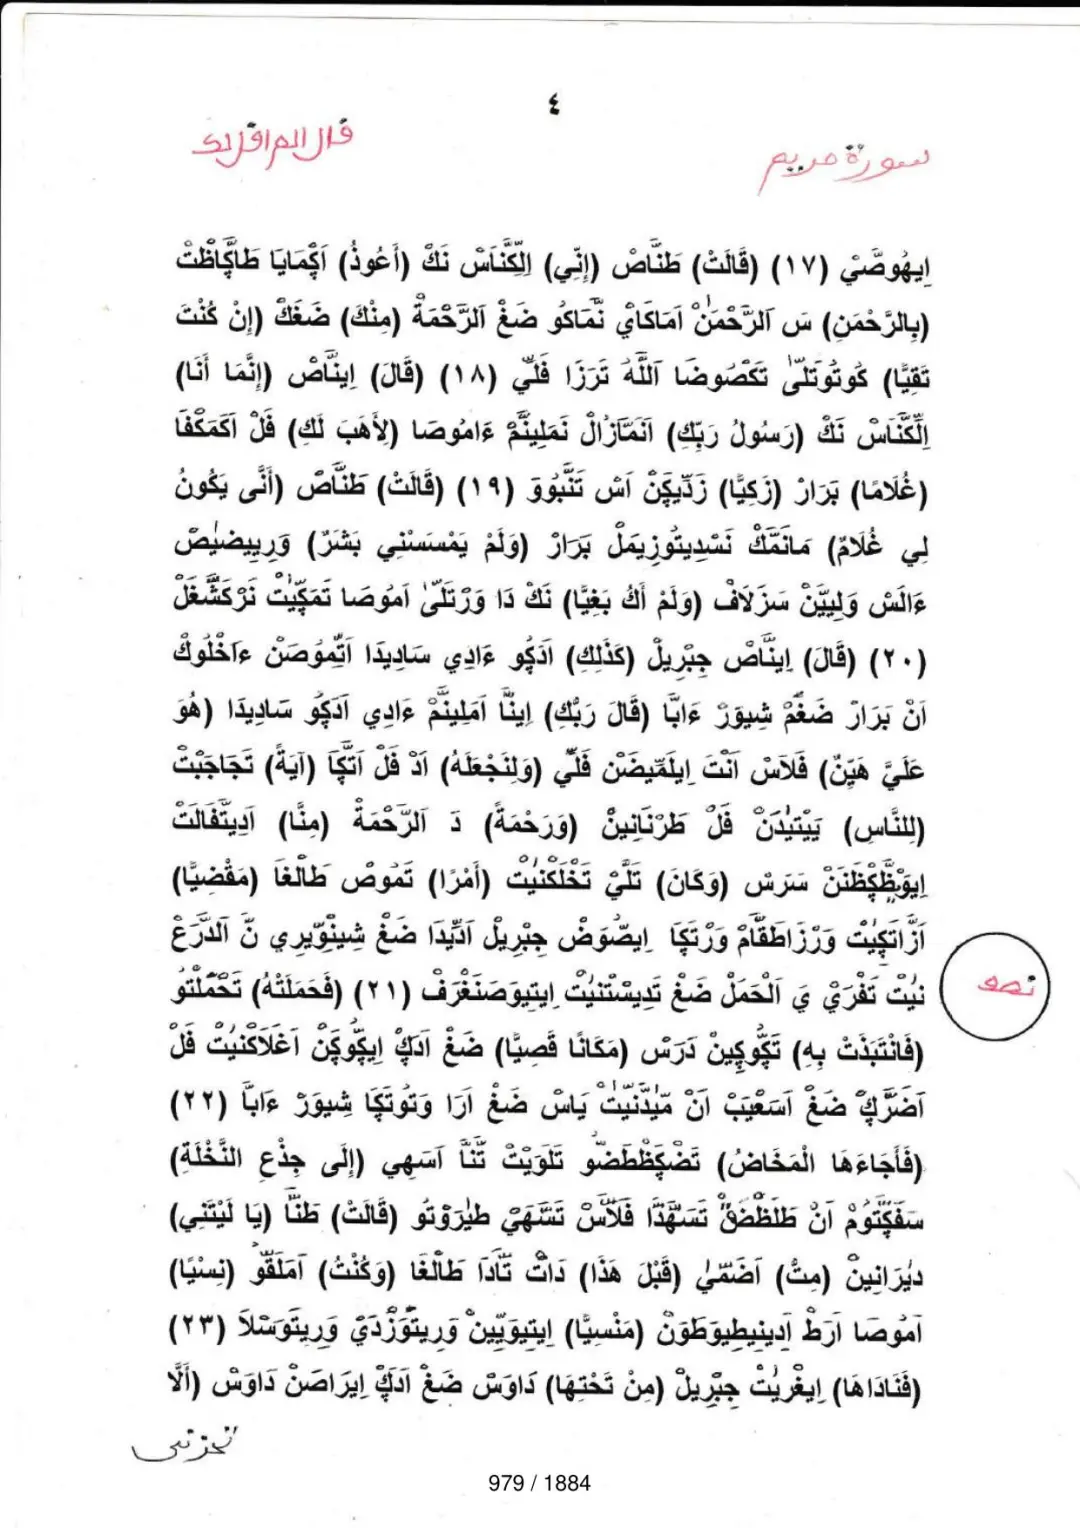 ٤
سورة مريم
قال الم اقل لك
اِيهُوصَّيْ (١٧) (قَالَتْ) طَنَّاصْ (إِنِّي) اِلِّكَّنَاسْ نَكْ (أَعُوذُ) اَكْمَايَا طَاكَّاظَتْ
(بِالرَّحْمَنِ) سَ اَلرَّحْمٰنْ اَمَاكَايْ نَّمَاكُو ضَغْ اَلرَّحْمَةْ (مِنْكَ) ضَغَكْ (إِنْ كُنْتَ
تَقِيًّا) كُوتُوتَلّىٰ تَكْصُوضَا اَللَّهُ تَرَزَا فَلّيْ (١٨) (قَالَ) اِينَّاصْ (إِنَّمَا أَنَا)
اِلِّكَّنَاسْ نَكْ (رَسُولُ رَبِّكِ) اَنَمَّازَالْ نَمَلِينَّمْ ءَامُوصَا (لِأَهَبَ لَكِ) فَلْ اَكَمَكْفَا
(غُلَامًا) بَرَارْ (زَكِيًّا) زَدِّيكَنْ اَسْ تَنَّبُووَ (١٩) (قَالَتْ) طَنَّاصْ (أَنَّى يَكُونُ
لِي غُلَامٌ) مَانَمَّكْ نَسْدِيتُوزِيمَلْ بَرَارْ (وَلَمْ يَمْسَسْنِي بَشَرٌ) وَرِيِيضِيصْ
ءَالَسْ وَلِيَيَّنْ سَزَلَافْ (وَلَمْ أَكُ بَغِيًّا) نَكْ دَا وَرْتَلّىٰ اَمُوصَا تَمَكِّيْتْ نَرْكَشَّغَلْ
(٢٠) (قَالَ) اِينَّاصْ جِبْرِيلْ (كَذَلِكِ) اَدَكُو ءَادِي سَادِيدَا اَتِّمُوصَنْ ءَاخْلُوكْ
اَنْ بَرَارْ ضَغَمْ شِيوَرْ ءَابَّا (قَالَ رَبُّكِ) اِينَّا اَمَلِينَّمْ ءَادِي اَدَكُو سَادِيدَا (هُوَ
عَلَيَّ هَيِّنٌ) فَلَاسْ اَنْتَ اِيلَمِّيضَنْ فَلّيْ (وَلِنَجْعَلَهُ) اَدْ فَلْ اَتَّكَا (آيَةً) تَجَاجَبْتْ
(لِلنَّاسِ) يَيْتِيْدَنْ فَلْ طَرْنَانِينْ (وَرَحْمَةً) دَ اَلرَّحْمَةْ (مِنَّا) اَدِيتَّفَالَتْ
اِيوَظَّكَظَنَنْ سَرَسْ (وَكَانَ) تَلَّيْ تَخْلَكْنِيْتْ (أَمْرًا) تَمُوصْ طَالْغَا (مَقْضِيًّا)
اَزَّاتَكِيْتْ وَرْزَاطَقَّامْ وَرْتَكَا اِيصُّوَضْ جِبْرِيلْ اَدِّيدَا ضَغْ شِينْوِّيرِي نَّ اَلدَّرَعْ
نِيْتْ تَفْرَيْ يَ اَلْحَمَلْ ضَغْ تَدِيسْتَنِيْتْ اِيتِيوَصَنْغَرَفْ (٢١) (فَحَمَلَتْهُ) تَحْمَلْتُو
نصف
(فَانْتَبَذَتْ بِهِ) تَكُّوكِينْ دَرَسْ (مَكَانًا قَصِيًّا) ضَغْ اَدَكْ اِيكُّوكَنْ اَغْلَاكْنِيْتْ فَلْ
اَضَرَّكْ ضَغْ اَسَعْيَبْ اَنْ مَيْدَنِيْتْ يَاسْ ضَغْ اَرَا وَتُوتَكَا شِيوَرْ ءَابَّا (٢٢)
(فَأَجَاءَهَا الْمَخَاضُ) تَضْكَظَّطَضُّو تَلَوَيْتْ تَنَّا اَسَهِي (إِلَى جِذْعِ النَّخْلَةِ)
سَفَكَّتُومْ اَنْ طَلَظَّضَقْ تَسَهَّدَّا فَلَاسْ تَسَّهَيْ طَيْرَوْتُو (قَالَتْ) طَنَّا (يَا لَيْتَنِي)
دِيْرَانِينْ (مِتُّ) اَضَمّيْ (قَبْلَ هَذَا) دَاتْ تَّادَا طَالْغَا (وَكُنْتُ) اَمَلَقُّو (نِسْيًا)
اَمُوصَا اَرَطْ اَدِينِيطِيوَطَوَنْ (مَنْسِيًّا) اِيتِيوَيِّينْ وَرِيتَوَزْدَيْ وَرِيتَوَسْلَا (٢٣)
(فَنَادَاهَا) اِيغْرِيْتْ جِبْرِيلْ (مِنْ تَحْتِهَا) دَاوَسْ ضَغْ اَدَكْ اِيرَاصَنْ دَاوَسْ (أَلَّا
تحزني
979 / 1884